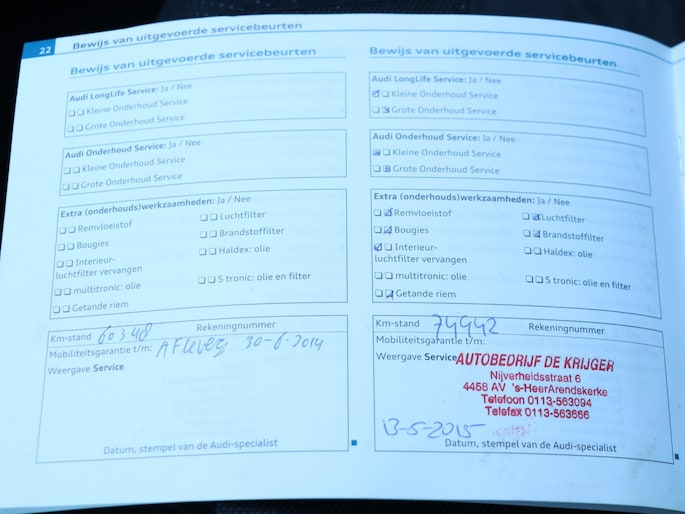 22
Bewijs van uitgevoerde servicebeurten
Bewijs van uitgevoerde servicebeurten
Audi LongLife Service: Ja / Nee
Kleine Onderhoud Service
Grote Onderhoud Service
Audi Onderhoud Service: Ja / Nee
Kleine Onderhoud Service
Grote Onderhoud Service
Extra (onderhouds)werkzaamheden: Ja / Nee
Remvloeistof
Luchtfilter
Bougies
Brandstoffilter
Interieur-
luchtfilter vervangen
Haldex: olie
multitronic: olie
S tronic: olie en filter
Getande riem
Km-stand 60348 Rekeningnummer
Mobiliteitsgarantie t/m: 30-6-2014
Weergave Service
Datum, stempel van de Audi-specialist
Bewijs van uitgevoerde servicebeurten
Audi LongLife Service: Ja / Nee
Kleine Onderhoud Service
Grote Onderhoud Service
Audi Onderhoud Service: Ja / Nee
Kleine Onderhoud Service
Grote Onderhoud Service
Extra (onderhouds)werkzaamheden: Ja / Nee
Remvloeistof
Luchtfilter
Bougies
Brandstoffilter
Interieur-
luchtfilter vervangen
Haldex: olie
multitronic: olie
S tronic: olie en filter
Getande riem
Km-stand 74942 Rekeningnummer
Mobiliteitsgarantie t/m:
Weergave Service
AUTOBEDRIJF DE KRIJGER
Nijverheidsstraat 6
4458 AV 's-HeerArendskerke
Telefoon 0113-563094
Telefax 0113-563666
13-5-2015
Datum, stempel van de Audi-specialist